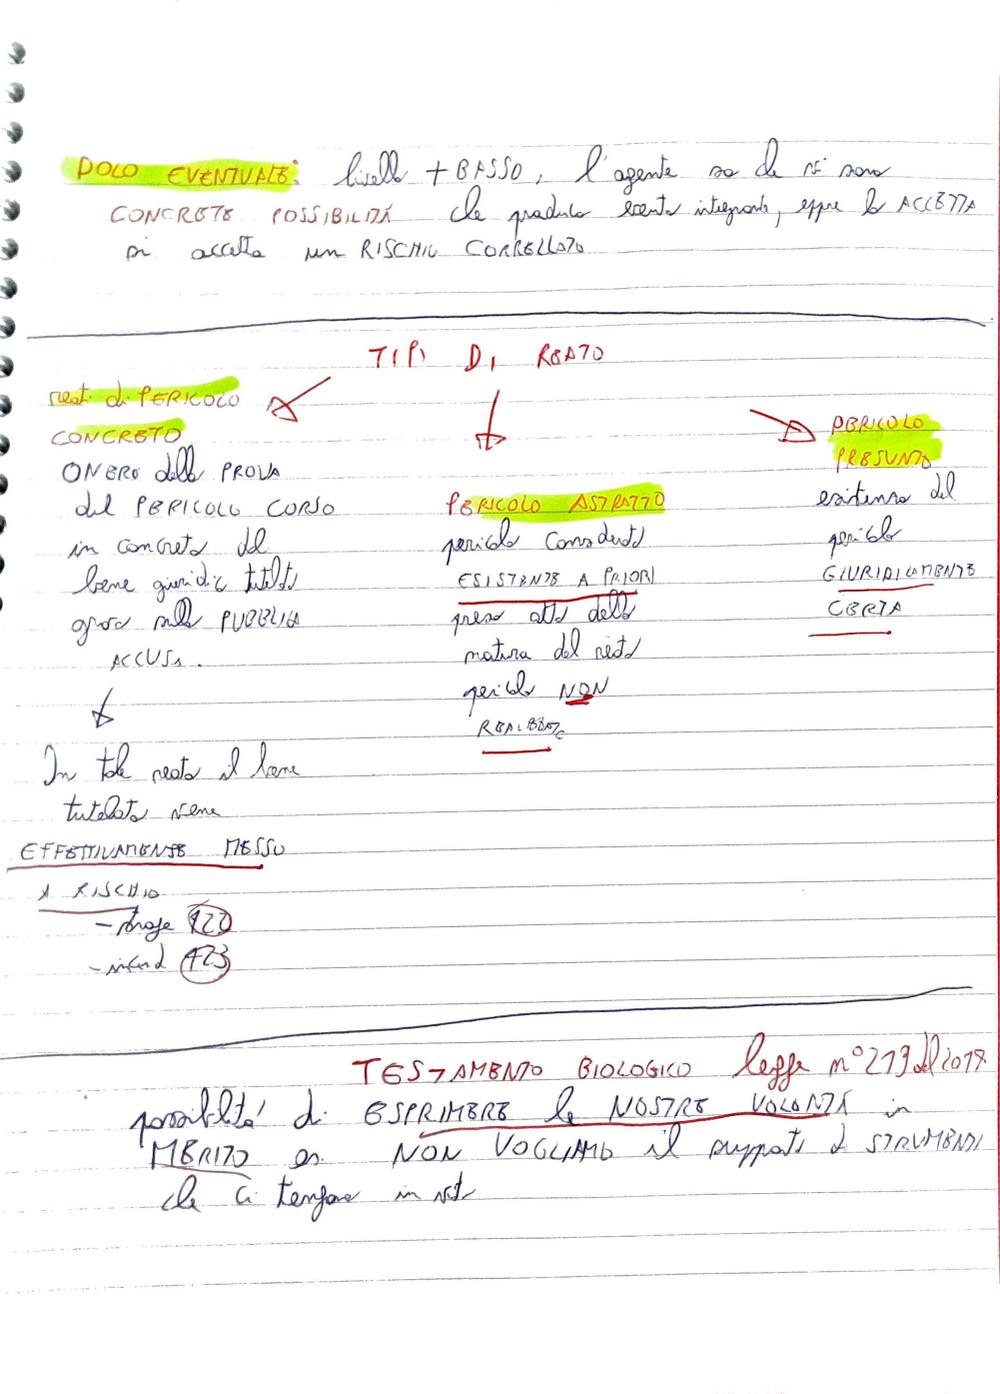 DOLO EVENTUALE: livello + BASSO, l'agente sa che vi sono
CONCRETE POSSIBILITÀ che produca evento integrante, eppure lo ACCETTA
si accetta un RISCHIO CORRELLATO
TIPI DI REATO
reati di PERICOLO
CONCRETO
ONERO della PROVA
del PERICOLO CORSO
in concreto del
bene giuridic tutelato
grava sulla PUBBLICA
ACCUSA.
In tale reato il bene
tutelato viene
EFFETTIVAMENTE MESSO
A RISCHIO
- strage 422
- incend 423
PERICOLO ASTRATTO
pericolo considerato
ESISTENTE A PRIORI
preso atto della
natura del reato
pericolo NON
PERICOLO
PRESUNTO
esistenza del
pericolo
GIURIDICAMENTE
CERTA
TESTAMENTO BIOLOGICO legge n° 219 del 2017
possibilità di ESPRIMERE le NOSTRE VOLONTÀ in
MERITO es. NON VOGLIAMO il supporto di STRUMENTI
che ci tengano in vita